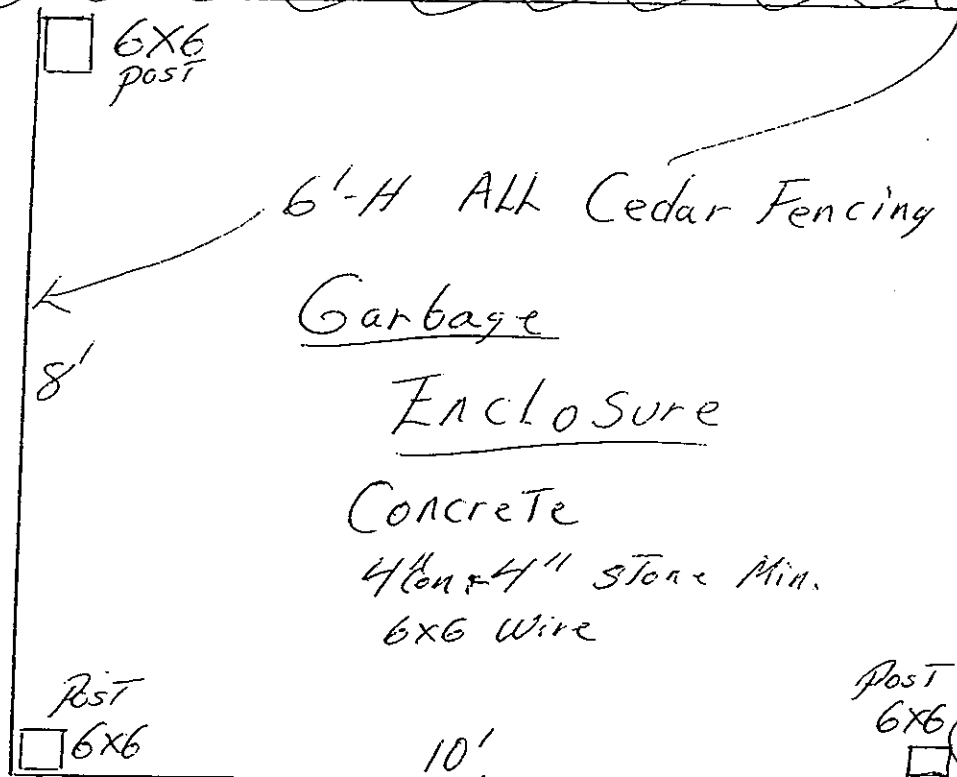 6X6
post
6'-H ALL Cedar Fencing
8'
Garbage
Enclosure
Concrete
4" Stone Min.
6x6 Wire
Post
6x6
10'
Post
6x6